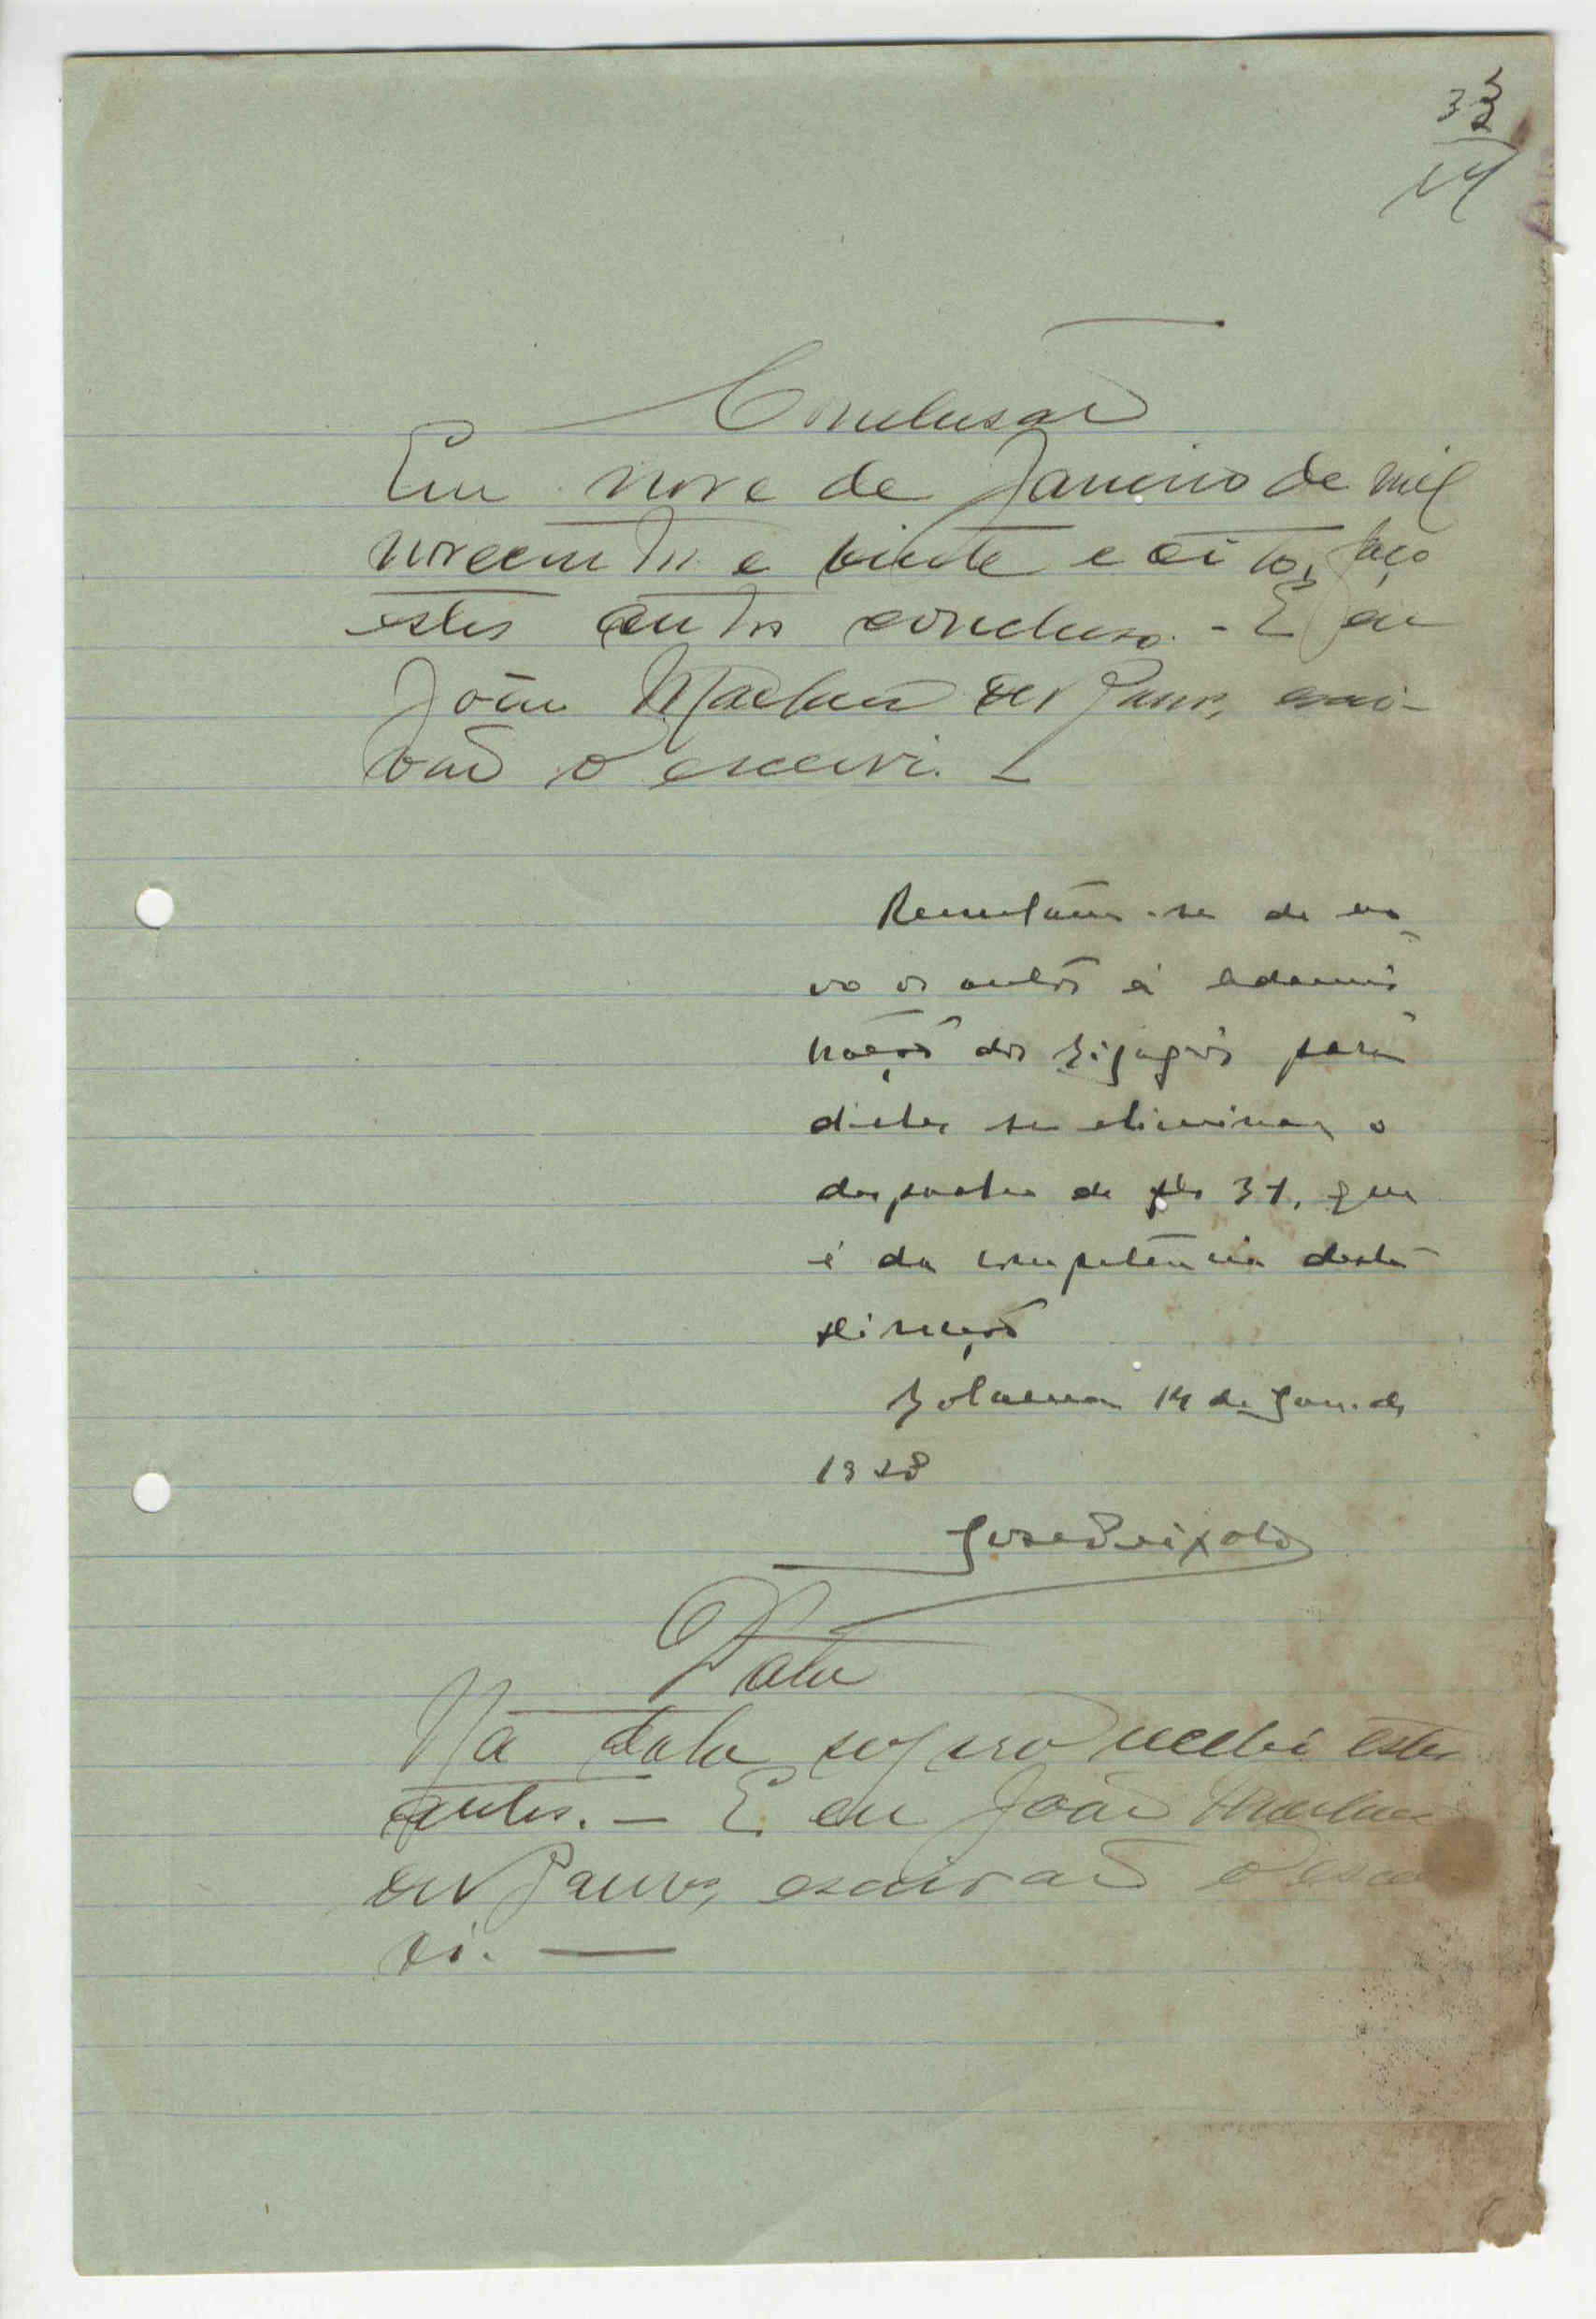 33
Conclusão
Em nove de Janeiro de mil
novecentos e vinte e oito, faço
estes autos concluso. - E eu
João Machado dos Passos, escri-
vão o escrevi. -
Remetam-se de no
vo os autos á adminis
tração dos Bijagós para
d'eles se eliminar o
despacho de fls 31, que
é da competência desta
direcção
Bolama 14 de Jan. de
1928
José Peixoto
Data
Na data supra recebi estes
autos. - E eu João Machado
dos Passos, escrivão o escre
vi. -